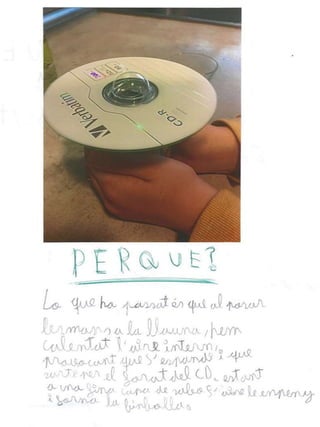 Verbatim
CD-R
PERQUE?
Lo que ha passat és que al posar
les mans a la llauna, hem
calentat l'aire intern,
provocant que s'espandi i que
surti per el forat del CD, estant
a una fina capa de sabó l'aire le enpeny
i forma la bimbolla.